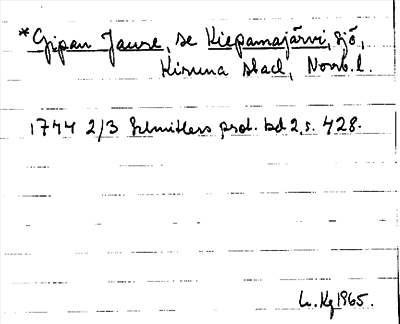 *Gipan Jaure, se Kiepamajärvi, sjö,
Kiruna stad, Norrb. l.
1744 2/3 Schnitlers prot. bd 2, s. 428.
Kg 1965.